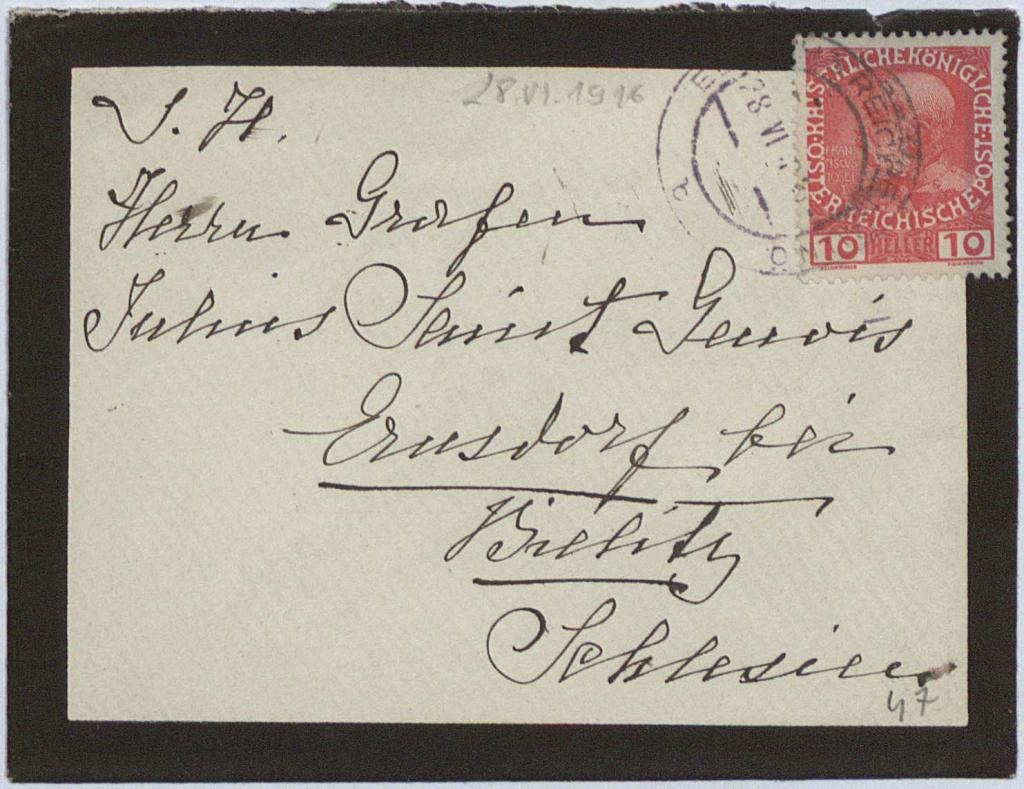 28.VI.1916
S. H.
Herrn Grafen
Julius Saint Genois
Ernsdorf bei
Bielitz
Schlesien
47
28 VI
KAISERLICHE KÖNIGLICHE ÖSTERREICHISCHE POST
FRAN
CISCVS
IOSEF
I
10 HELLER 10